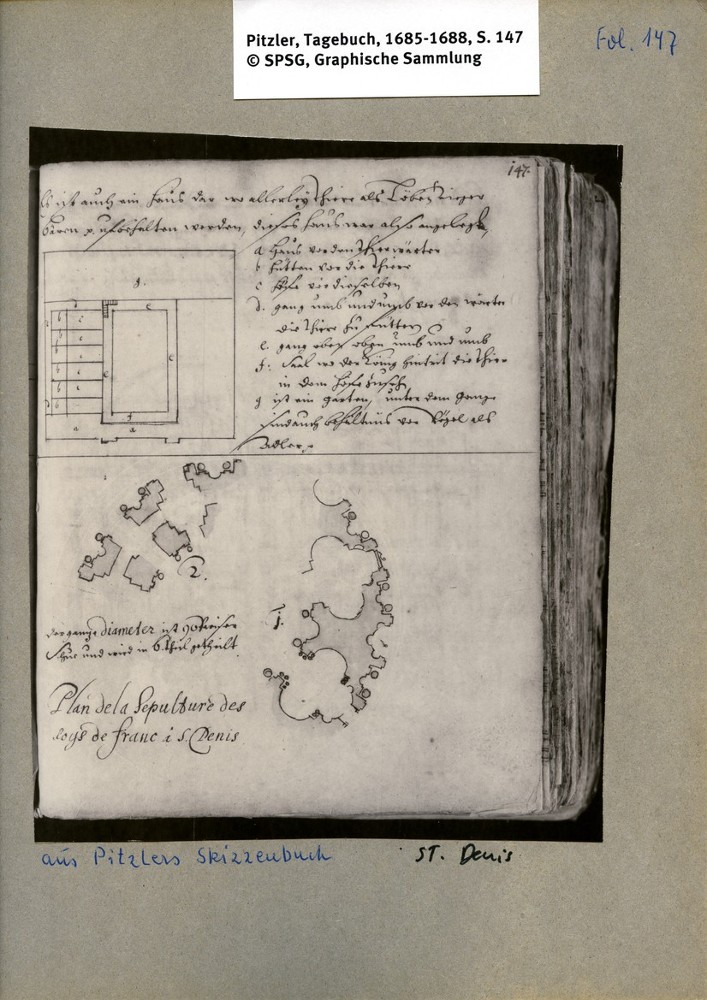 Pitzler, Tagebuch, 1685-1688, S. 147
© SPSG, Graphische Sammlung
Fol. 147
147.
Es ist auch ein Haus der wo allerley Thiere als Löben Tieger
Bären unterhalten werden, dieses Haus war also angelegt,
a Haus vor den Thierwärter
b Hütten vor die Thiere
c Höfe vor dieselben
d. gang umb und umb vor den wärter
die Thiere zu füttern
e. gang oben umb und umb
f. Saal wo der König hintrit die Thier
in dem Hofe
g ist ein garten, unter dem gange
sind auch behältnus vor Vögel als
Adler
g.
c
b c
b
b
b
b
a
f
a
c
e
2.
1.
der gantze diameter ist 90
Schue und wird in 6 theil getheilt
Plan de la Sepulture des
roys de franc à S. Denis
aus Pitzlers Skizzenbuch
ST. Denis